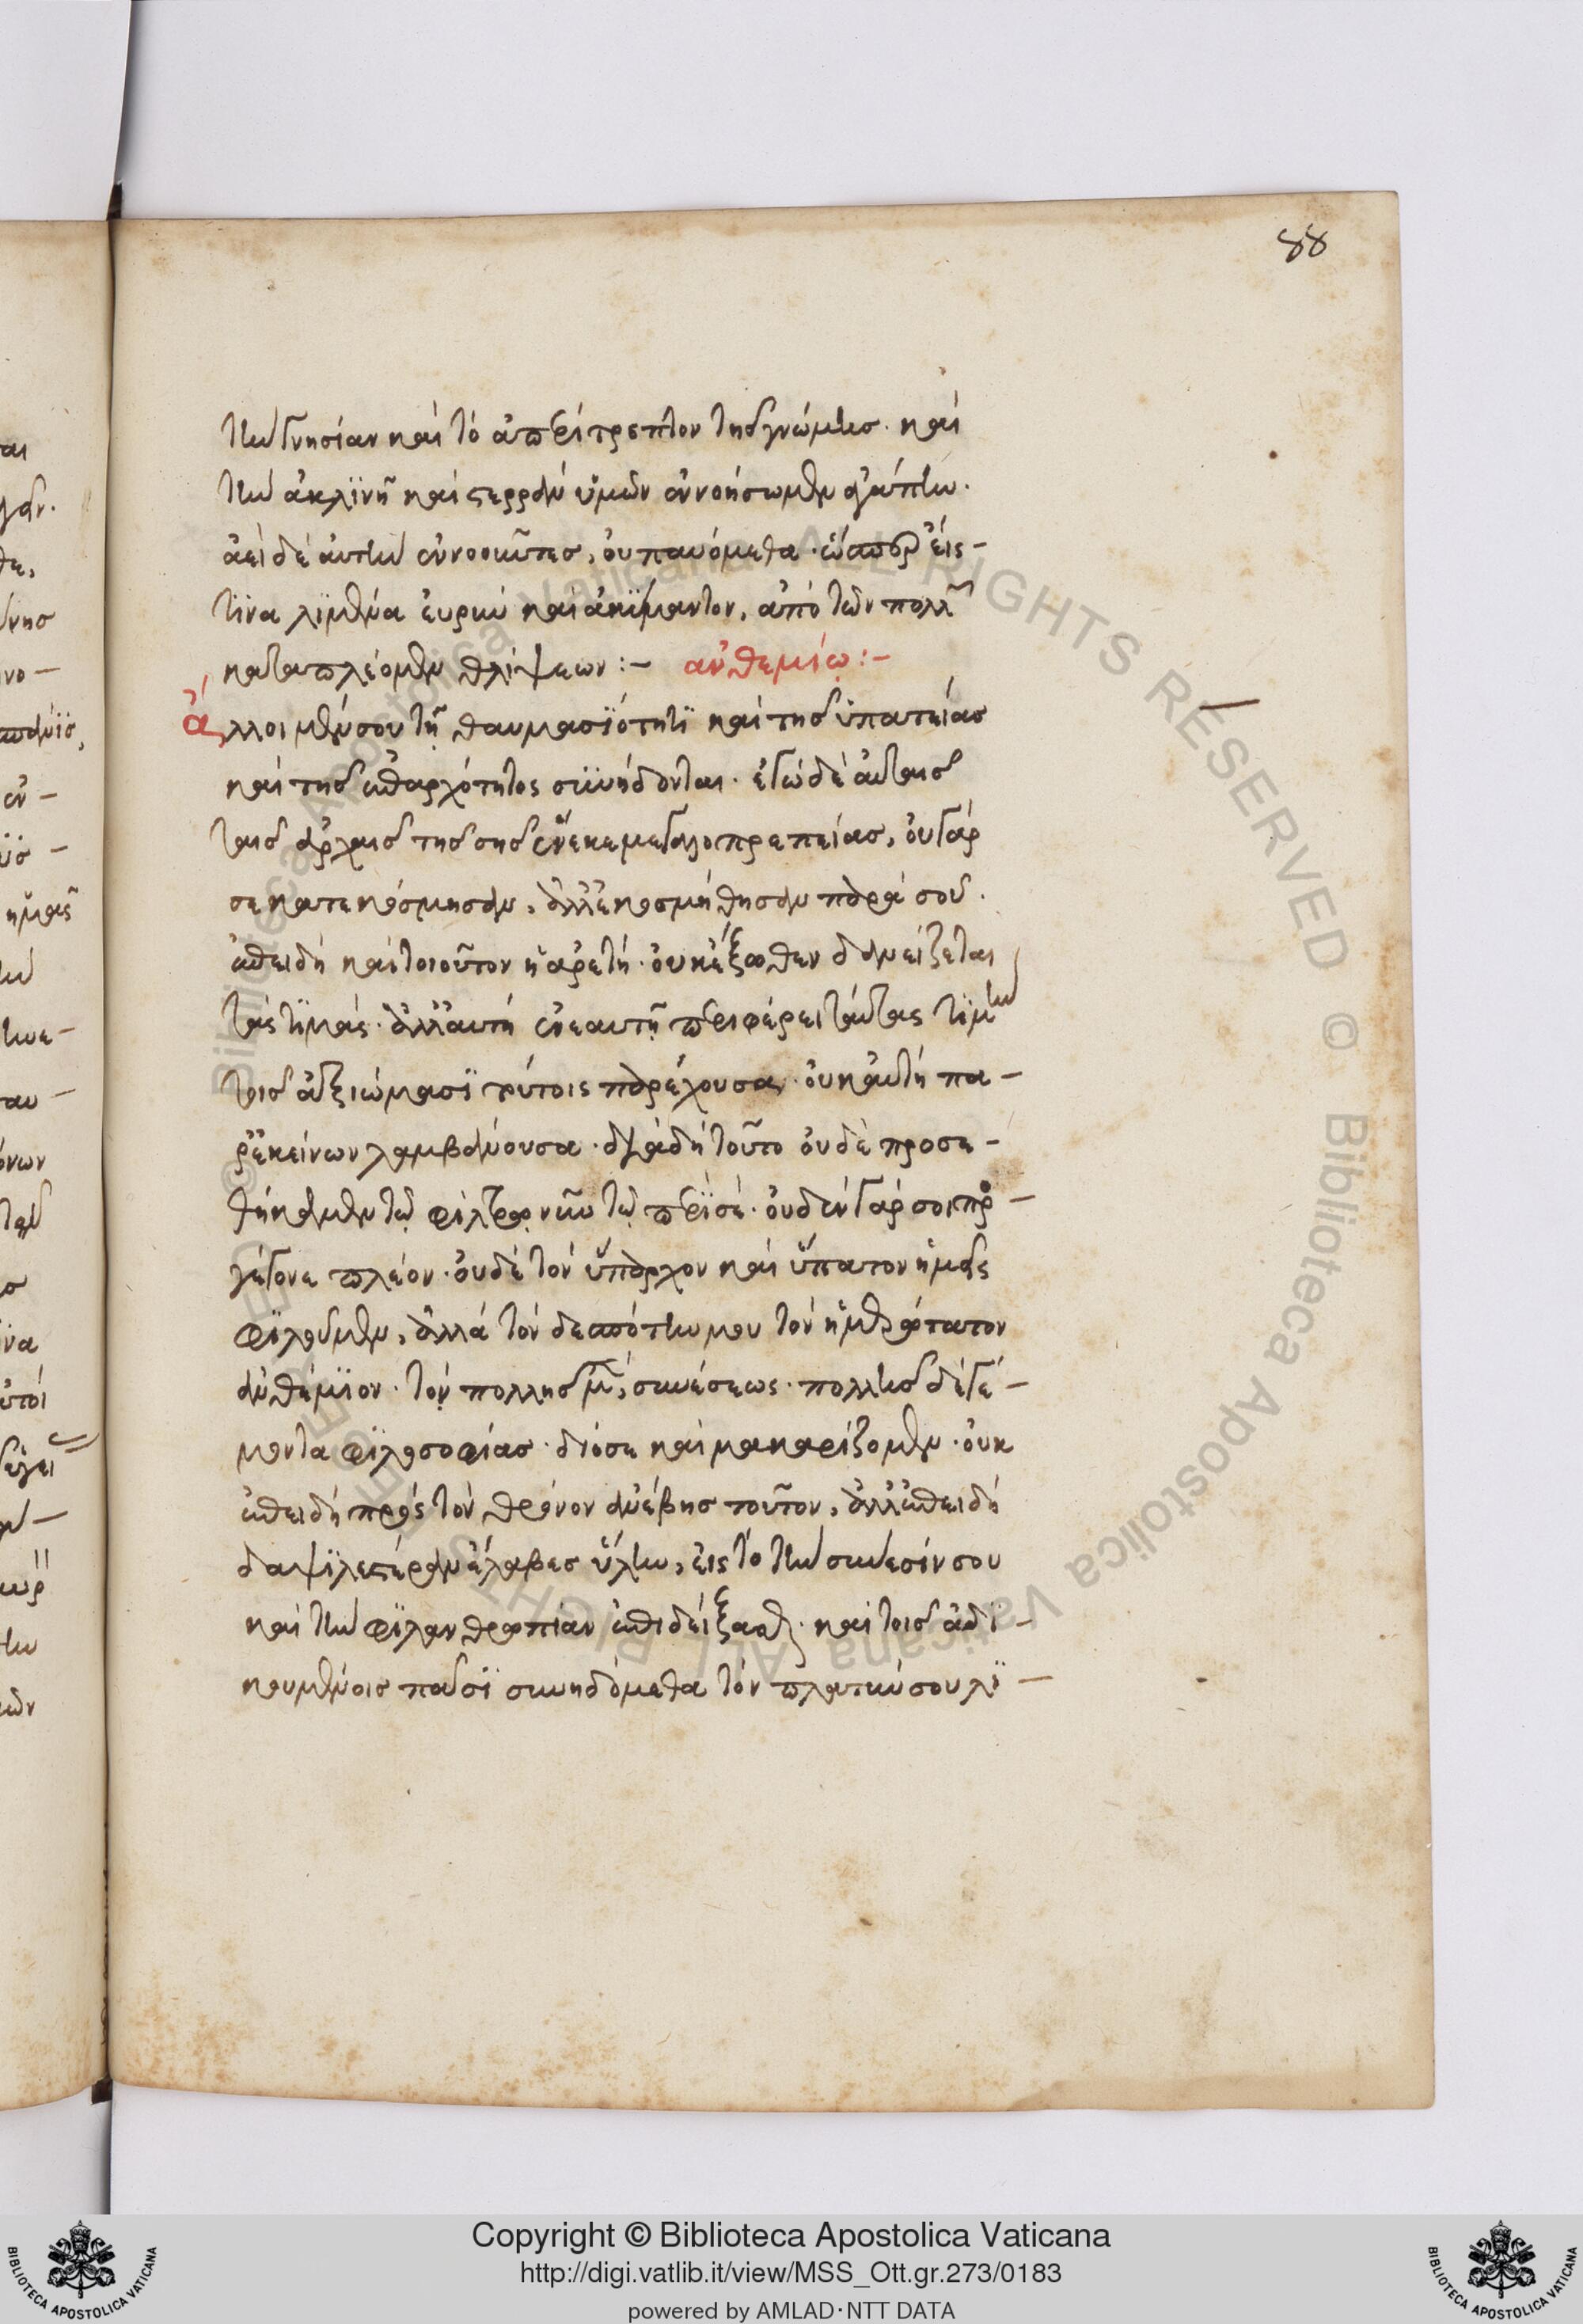 88
τὴν γνησίαν καὶ τὸ ἀπερίτρεπτον τῆς γνώμης. καὶ
τὴν ἀκλϊνῆ καὶ στερρὰν ὑμῶν ἐννοήσωμεν ἀγάπην.
ἀεὶ δὲ αὐτὴν ἐννοοῦντες, οὐ παυόμεθα. ὥσπερ εἰς
τϊνα λϊμένα εὐρὺν καὶ ἀκύμαντον, ἀπὸ τῶν πολλῶν
καταπλέομεν θλίψεων :- ἀνθεμίῳ :-
ἄλλοι μέν σου τῇ θαυμασϊότητϊ καὶ τῆς ὑπατείας
καὶ τῆς ἐπαρχότητος συνήδονται. ἐγὼ δὲ αὐταῖς
ταῖς ἀρχαῖς τῆς σῆς ἕνεκε μεγαλοπρεπείας, οὐ γάρ
σε κατεκόσμησαν, ἀλλ' ἐκοσμήθησαν παρὰ σοῦ.
ἐπειδὴ καὶ τοιοῦτον ἡ ἀρετή. οὐκ ἔξωθεν δανείζεται
τὰς τϊμάς. ἀλλ' αὐτὴ ἐν ἑαυτῇ περιφέρει ταύτας τϊμὴν
τοῖς ἀξιώμασϊ τούτοις παρέχουσα. οὐκ αὐτὴ πα-
ρ' ἐκείνων λαμβάνουσα. διὰ δὴ τοῦτο οὐδὲ προσε-
θήκαμεν τῷ φίλτρῳ νῦν τῷ περὶ σέ. οὐδὲν γάρ σοι προ-
γέγονε πλέον. οὐδὲ τὸν ὕπαρχον καὶ ὕπατον ἡμεῖς
φϊλοῦμεν, ἀλλὰ τὸν δεσπότην μου τὸν ἡμερώτατον
ἀνθέμϊον. τὸν πολλῆς μὲν, συνέσεως. πολλῆς δὲ γέ-
μοντα φϊλοσοφίας. διό σε καὶ μακαρίζομεν. οὐκ
ἐπειδὴ πρὸς τὸν θρόνον ἀνέβης τοῦτον, ἀλλ' ἐπειδὴ
δαψϊλεστέραν ἔλαβες ὕλην, εἰς τὸ τὴν σύνεσίν σου
καὶ τὴν φϊλανθρωπίαν ἐπιδείξασθαι. καὶ τοῖς ἀδϊ-
κουμένοις πᾶσϊ συνηδόμεθα τὸν πλατὺν σου λϊ-
Copyright © Biblioteca Apostolica Vaticana
http://digi.vatlib.it/view/MSS_Ott.gr.273/0183
powered by AMLAD·NTT DATA